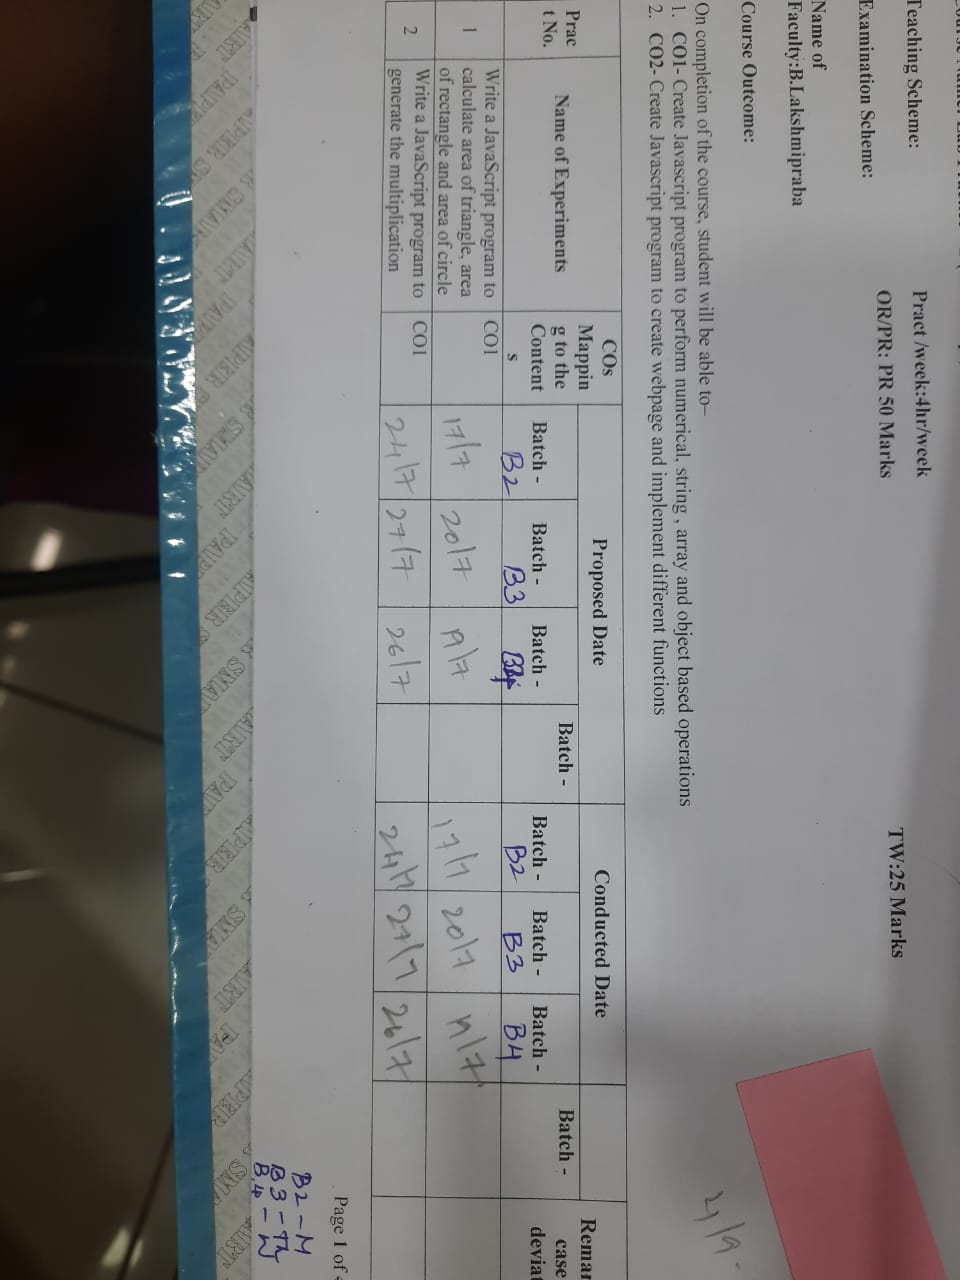 Teaching Scheme:
Pract /week:4hr/week
Examination Scheme:
OR/PR: PR 50 Marks
TW:25 Marks
Name of
Faculty:B.Lakshmipraba
Course Outcome:
On completion of the course, student will be able to–
1. CO1- Create Javascript program to perform numerical, string , array and object based operations
2. CO2- Create Javascript program to create webpage and implement different functions
2/9
Prac
t No.
Name of Experiments
COs
Mappin
g to the
Content
s
Proposed Date
Conducted Date
Remar
case
deviat
Batch -
B2
Batch -
B3
Batch -
Batch -
Batch -
B2
Batch -
B3
Batch -
B4
Batch -
1
Write a JavaScript program to
calculate area of triangle, area
of rectangle and area of circle
CO1
17/7
20/7
19/7
17/7
20/7
2
Write a JavaScript program to
generate the multiplication
CO1
24/7
27/7
26/7
24/7
27/7
26/7
Page 1 of
B2 – M
B3 – Th
B4 – W
SMART PAPER